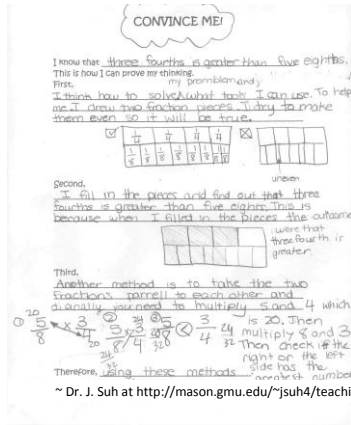 CONVINCE ME!
I know that three fourths is greater than five eighths.
This is how I can prove my thinking.
First, my promblem and
I think how to solve what tools I can use. To help
me I drew two fraction pieces. I try to make
them even so it will be true.
1/4 1/4 1/4 1/4
1/8 1/8 1/8 1/8 1/8 1/8 1/8 1/8
uneven
Second,
I fill in the pieces and find out that three
fourths is greater than five eighths. This is
because when I filled in the pieces the outcome
were that
three fourth is
greater
Third,
Another method is to take the two
fractions parrell to each other and
you need to multiply 5 and 4 which
is 20. Then
multiply 8 and 3
Then check if the
right or the left
side has the
greatest number
① 20 5/8 × 3/4 24
② 5 × 3
8 / 4
③ < 3/4 24/32
Therefore, using these methods
~ Dr. J. Suh at http://mason.gmu.edu/~jsuh4/teachi